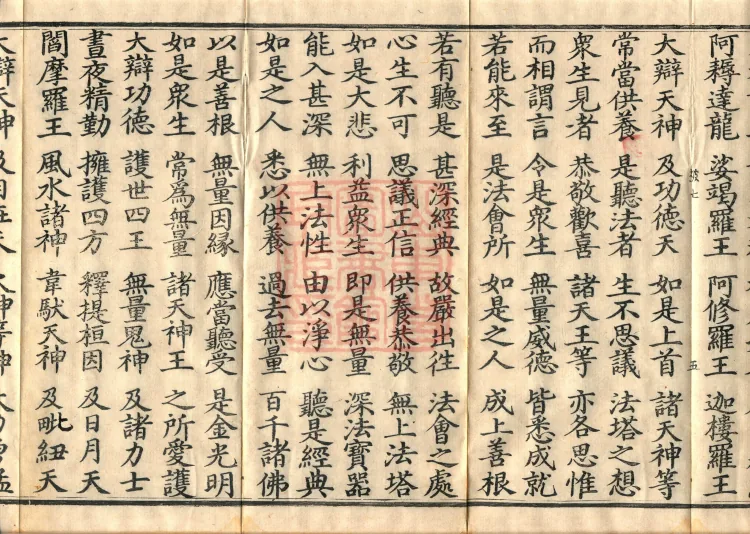 阿耨達龍 娑竭羅王 阿修羅王 迦樓羅王
七 五
大辯天神 及功德天 如是上首 諸天神等
常當供養 是聽法者 生不思議 法塔之想
衆生見者 恭敬歡喜 諸天王等 亦各思惟
而相謂言 令是衆生 無量威德 皆悉成就
若能來至 是法會所 如是之人 成上善根
若有聽是 甚深經典 故嚴出往 法會之處
心生不可 思議正信 供養恭敬 無上法塔
如是大悲 利益衆生 即是無量 深法寶器
能入甚深 無上法性 由以淨心 聽是經典
如是之人 悉以供養 過去無量 百千諸佛
以是善根 無量因縁 應當聽受 是金光明
如是衆生 常爲無量 諸天神王 之所愛護
大辯功德 護世四王 無量鬼神 及諸力士
晝夜精勤 擁護四方 釋提桓因 及日月天
閻摩羅王 風水諸神 韋馱天神 及毗紐天
大辯天神 及自在天 火神等神 大力勇猛